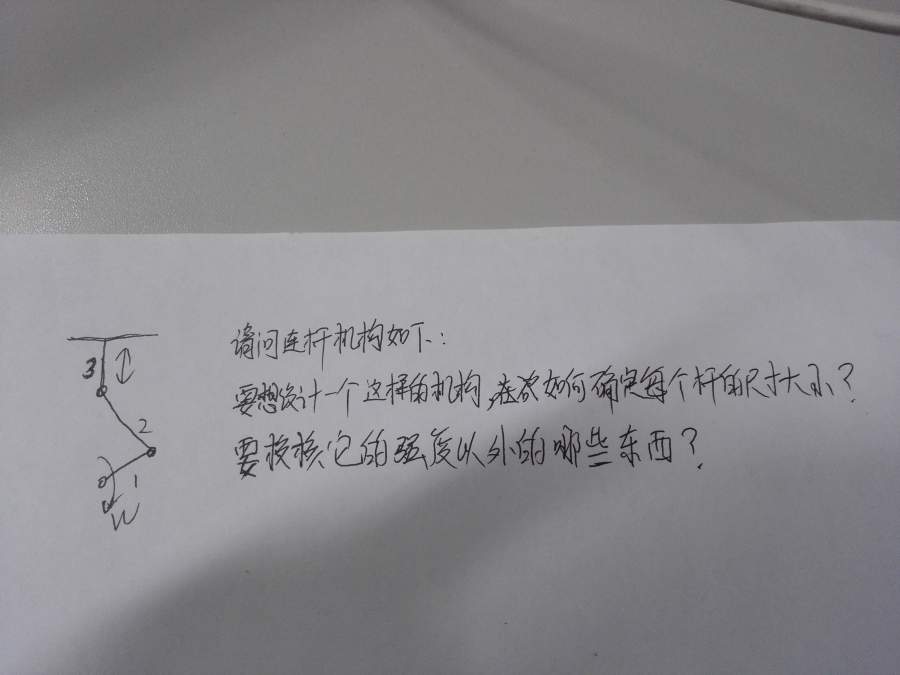 请问连杆机构如下:
要想设计一个这样的机构,应该如何确定每个杆的尺寸大小?
要校核它的强度以外的哪些东西?
3
2
1
W